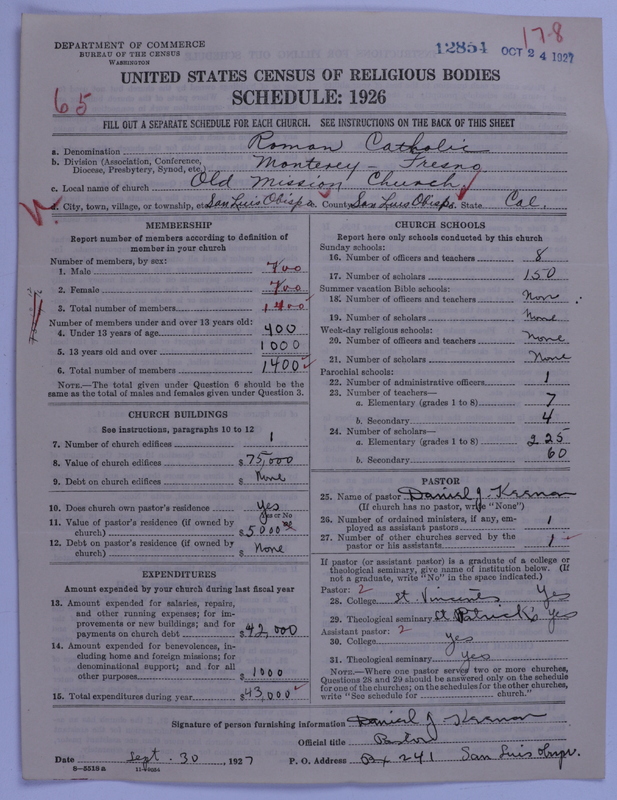 178
DEPARTMENT OF COMMERCE
BUREAU OF THE CENSUS
WASHINGTON
12854 OCT 24 1927
UNITED STATES CENSUS OF RELIGIOUS BODIES
65
SCHEDULE: 1926
FILL OUT A SEPARATE SCHEDULE FOR EACH CHURCH. SEE INSTRUCTIONS ON THE BACK OF THIS SHEET
a. Denomination Roman Catholic
b. Division (Association, Conference, Diocese, Presbytery, Synod, etc.) Monterey - Fresno
c. Local name of church Old Mission Church
d. City, town, village, or township, etc. San Luis Obispo County San Luis Obispo State Cal.
MEMBERSHIP
Report number of members according to definition of
member in your church
Number of members, by sex:
1. Male 700
2. Female 700
3. Total number of members 1400
Number of members under and over 13 years old:
4. Under 13 years of age 400
5. 13 years old and over 1000
6. Total number of members 1400
NOTE.—The total given under Question 6 should be the
same as the total of males and females given under Question 3.
CHURCH BUILDINGS
See instructions, paragraphs 10 to 12
7. Number of church edifices 1
8. Value of church edifices $75,000
9. Debt on church edifices $ None
10. Does church own pastor's residence Yes
Yes or No
11. Value of pastor's residence (if owned by
church) $5000
12. Debt on pastor's residence (if owned by
church) $ None
EXPENDITURES
Amount expended by your church during last fiscal year
13. Amount expended for salaries, repairs,
and other running expenses; for im-
provements or new buildings; and for
payments on church debt $42,000
14. Amount expended for benevolences, in-
cluding home and foreign missions; for
denominational support; and for all
other purposes $1000
15. Total expenditures during year $43,000
CHURCH SCHOOLS
Report here only schools conducted by this church
Sunday schools:
16. Number of officers and teachers 8
17. Number of scholars 150
Summer vacation Bible schools:
18. Number of officers and teachers Non
19. Number of scholars None
Week-day religious schools:
20. Number of officers and teachers None
21. Number of scholars None
Parochial schools:
22. Number of administrative officers 1
23. Number of teachers—
a. Elementary (grades 1 to 8) 7
b. Secondary 4
24. Number of scholars—
a. Elementary (grades 1 to 8) 225
b. Secondary 60
PASTOR
25. Name of pastor Daniel J. Keenan
(If church has no pastor, write "None")
26. Number of ordained ministers, if any, em-
ployed as assistant pastors 1
27. Number of other churches served by the
pastor or his assistants 1
If pastor (or assistant pastor) is a graduate of a college or
theological seminary, give name of institution below. (If
not a graduate, write "No" in the space indicated.)
Pastor: 2
28. College St. Vincents Yes
29. Theological seminary St Patricks Yes
Assistant pastor: 2
30. College Yes
31. Theological seminary Yes
NOTE.—Where one pastor serves two or more churches,
Questions 28 and 29 should be answered only on the schedule
for one of the churches; on the schedules for the other churches,
write "See schedule for church."
Signature of person furnishing information Daniel J Keenan
Official title Pastor
Date Sept. 30, 1927 P. O. Address Bx 241 San Luis Obispo.
8—5518a 11—9034